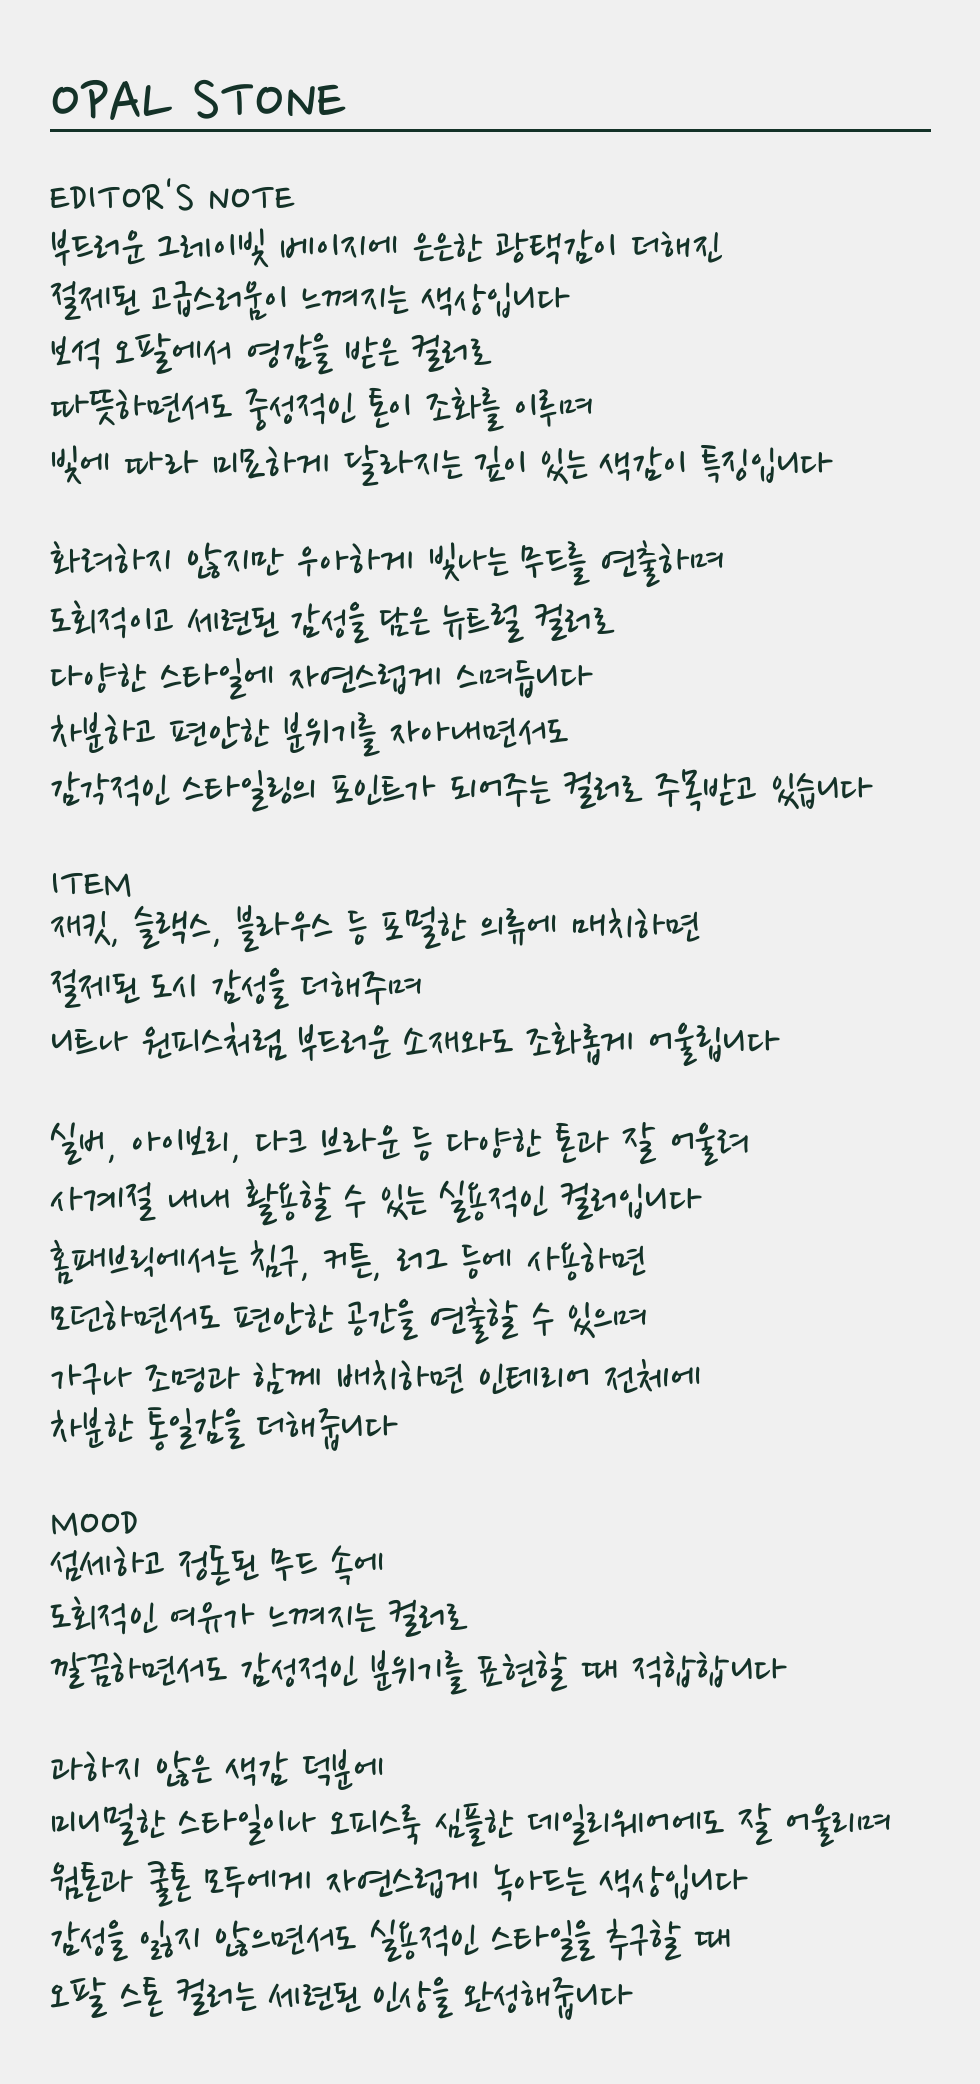 OPAL STONE
EDITOR'S NOTE
부드러운 그레이빛 베이지에 은은한 광택감이 더해진
절제된 고급스러움이 느껴지는 색상입니다
보석 오팔에서 영감을 받은 컬러로
따뜻하면서도 중성적인 톤이 조화를 이루며
빛에 따라 미묘하게 달라지는 깊이 있는 색감이 특징입니다
화려하지 않지만 우아하게 빛나는 무드를 연출하며
도회적이고 세련된 감성을 담은 뉴트럴 컬러로
다양한 스타일에 자연스럽게 스며듭니다
차분하고 편안한 분위기를 자아내면서도
감각적인 스타일링의 포인트가 되어주는 컬러로 주목받고 있습니다
ITEM
재킷, 슬랙스, 블라우스 등 포멀한 의류에 매치하면
절제된 도시 감성을 더해주며
니트나 원피스처럼 부드러운 소재와도 조화롭게 어울립니다
실버, 아이보리, 다크 브라운 등 다양한 톤과 잘 어울려
사계절 내내 활용할 수 있는 실용적인 컬러입니다
홈패브릭에서는 침구, 커튼, 러그 등에 사용하면
모던하면서도 편안한 공간을 연출할 수 있으며
가구나 조명과 함께 배치하면 인테리어 전체에
차분한 통일감을 더해줍니다
MOOD
섬세하고 정돈된 무드 속에
도회적인 여유가 느껴지는 컬러로
깔끔하면서도 감성적인 분위기를 표현할 때 적합합니다
과하지 않은 색감 덕분에
미니멀한 스타일이나 오피스룩 심플한 데일리웨어에도 잘 어울리며
웜톤과 쿨톤 모두에게 자연스럽게 녹아드는 색상입니다
감성을 잃지 않으면서도 실용적인 스타일을 추구할 때
오팔 스톤 컬러는 세련된 인상을 완성해줍니다